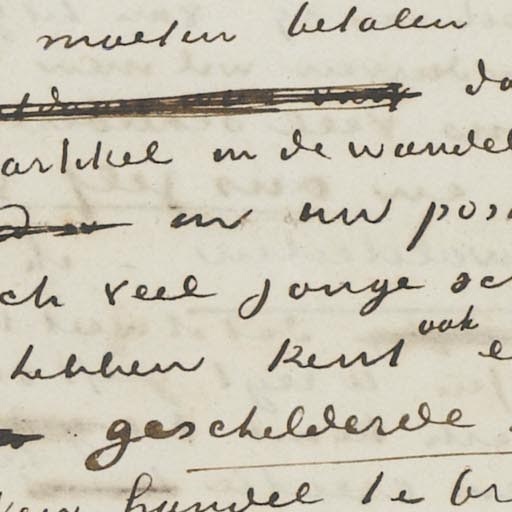 moeten betalen
do
artikel in de wandel
en uw pos
ch veel jonge sc
hebben kent ook e
geschilderde
handel te br